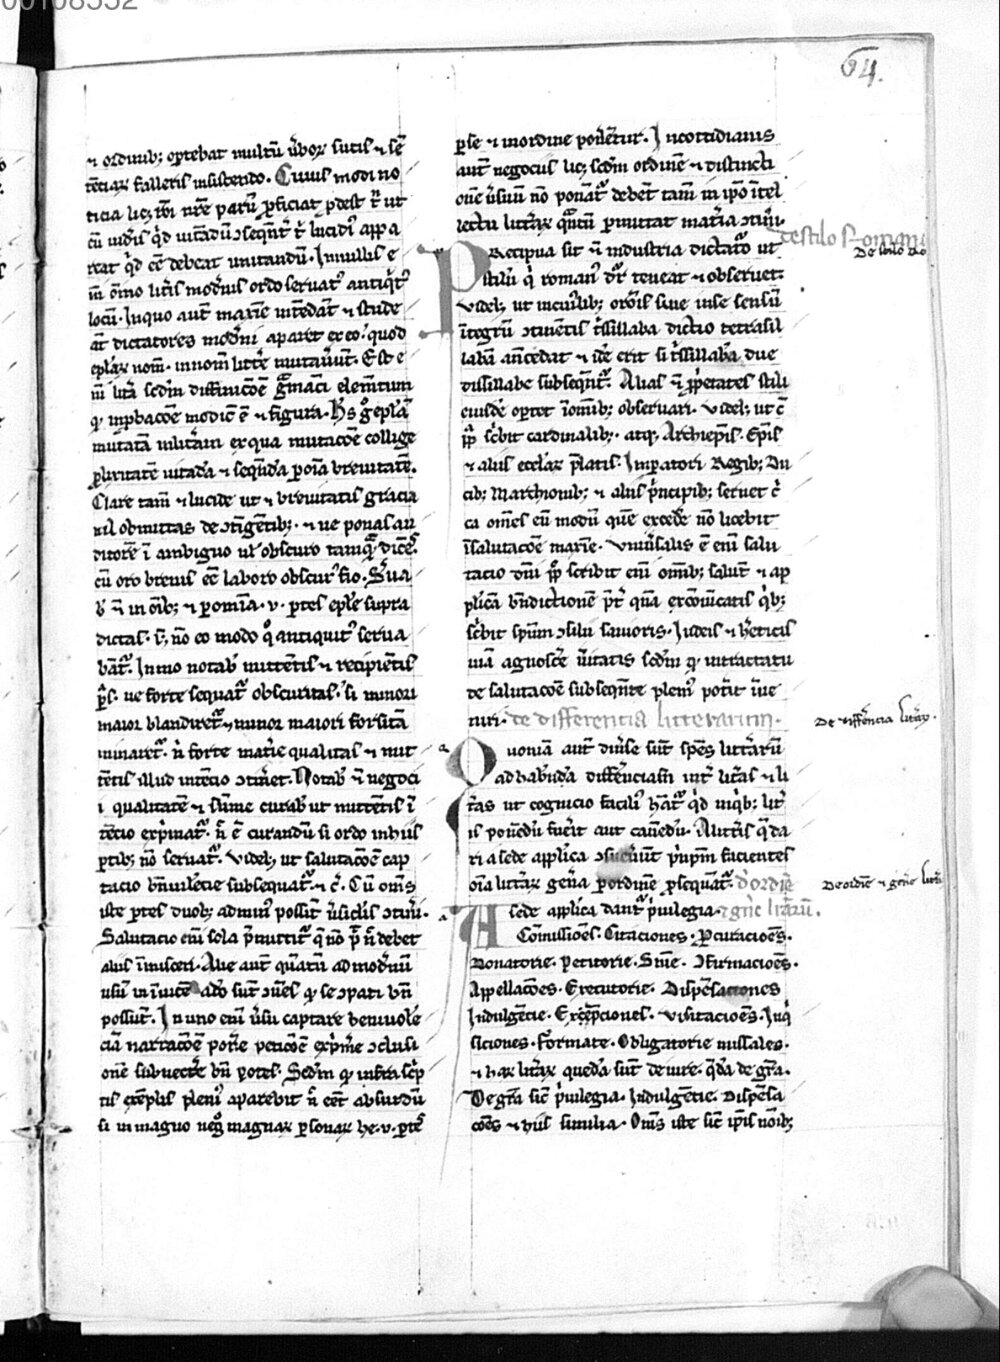 00108332
64.
⁊ ordinib; oportebat multū ūboꝝ sutis ⁊ sē
tētiaꝝ falleris insistendo. Cuius modi no
ticia lic; tibi nr̄e parū ꝓficiat pdest
cū
reat qd eē debeat uitandū. In nullis e
ni oīno litis modn̄us ordo seruat antiqꝰ
locū. In quo aut maxīe intēdāt ⁊ stude
āt dictatores modn̄i apareᷣt ex eo. quod
eplaꝝ nom̄. in nom̄ litte mutauūt. Est e
ni litā scdm diffinicōē gͣmaci elemētum
qꝫ inpbacōe modice ē ⁊ figura. Hāc gͦ eplā
mutatā militām ex qua mutacōe collige
plixitatē uitādā ⁊ seqndā poīa breuitatē.
Clare tam̄ ⁊ lucide ut ⁊ breuitatis gracia
nil obmittas de ɔtīgētib;. ⁊ ne ponas au
ditorē ī ambiguo ul obscuro tamq̄ dicēs
cū oro breuis eē laboro obscurꝰ fio. Sua
b n̄ in oīb; ⁊ p omīa .v. ptes eple supra
dictas. s; nō eo modo qͦ antiquitꝰ serua
bāt. Immo notab mittētis ⁊ recipiētis
ne forte sequat obscuritas. si minori
maior blandiret. ⁊ minor maiori forsitā
minaret. n̄ forte mat̄ie qualitas ⁊ mit
tētis illud intēcio ɔtin̄et. Notab n̄ negoci
i qualitatē ⁊ sūme curab ut mittētis ī
tēcio expmat. n̄ ē curandū si ordo in hiis
ptib; nō seruat. Videl; ut salutacōē cap
tacio bn̄iuolēcie subsequat ⁊ c̄. Cū om̄s
iste ptes duob; ad minꝰ possīt
Salutacio eni sola pmittit q nō debet
aliis īmisceri. Alie aut quatū ad modnū
usū in īuicē adō sunt ɔūēs qꝫ se ɔpati bn̄
possūt. In uno eni ūsu captare beniuolē
ciā narracōē pon̄e peticōē expme ɔclusi
onē subnectē bn̄ potes. Scdm qꝫ infra scp
tis exēplis pleniꝰ aparebit n̄ eēt absurdū
si in magno neg magnaꝝ psonaꝝ he .v. pte
p se ⁊ in ordine ponēretur. In cottidianis
aut negociis lic; scdm ordinē ⁊ distincti
onē ūsuū nō ponāt debēt tam̄ in ipo ītel
lectu litt̄aꝝ qͣntū pmittat mat̄ia ɔtin̄i.
de stilo romani
De stilo Ro
PRecipua sit n̄ industria dictato ut
stilū q romanꝰ dr̄ teneat ⁊ obseruet
Videl; ut in cuiuslib; oronis siue in se sensū
ītegrū ɔtinētis tsillaba dictio tetrasil
labā an̄cedat ⁊ idē erit si tsillabā due
dissillabe subseqnt. Alias n̄ ꝓpetates stili
eiusdē oportet ī omīb; obseruari. Videl; ut cū
scbit cardinalib;. atq; Archiepis. Epis
⁊ aliis ecclaꝝ p̄latis. Imperatori Regib; Du
cib; Marchionib; ⁊ aliis pncipib; seruet c̄
ca omēs eū modū que excede nō licebit
ī salutacōe maxīe. Vniūsalis ē eni salu
tacio dni pp scribit eni omīb; salutē ⁊ ap
plicā bn̄dictionē pt qua excōicatis qb;
scbit spm ɔsilii sanioris. Iudeis ⁊ hēticis
uiā agnosce ūitatis scdm qꝫ in tractatu
de salutacōe subseqnte pleniꝰ potit īue
niri. de differentia litterarum.
De differencia litꝝ.
Quoniā aut diūse sūt spēs litt̄arū
ad habn̄dā diff̄enciam int̄ litas ⁊ li
tas ut cognicio faciliꝰ hat qd in qb; lit
is ponēdū fuit aut cauēdū. A litt̄is q da
ri a sede applica ɔsueuūt pncipiū facientes
oīa litt̄aꝝ gen̄a p ordinē psequāt. d ordīe
De ordīe ⁊ gn̄e litꝝ
A sede applica dant priuilegia. ⁊ gn̄e litarū.
Cōmissiōēs. Citaciones. Pcuraciōēs.
Donatorie. Petitorie. Sūme. ɔfirmaciōēs.
Appellacōes. Executorie. Dispēsaciones
Indulgētie. Exēpciones. Visitaciōēs. Inq
siciones. Formate. Obligatorie missales.
⁊ haꝝ litaꝝ quedā sūt de iure. qdā de gr̄a.
De gr̄a sic priuilegia. Indulgētie. Dispēsa
cōes ⁊ hiis similia. Om̄s iste sic ipis noīb;